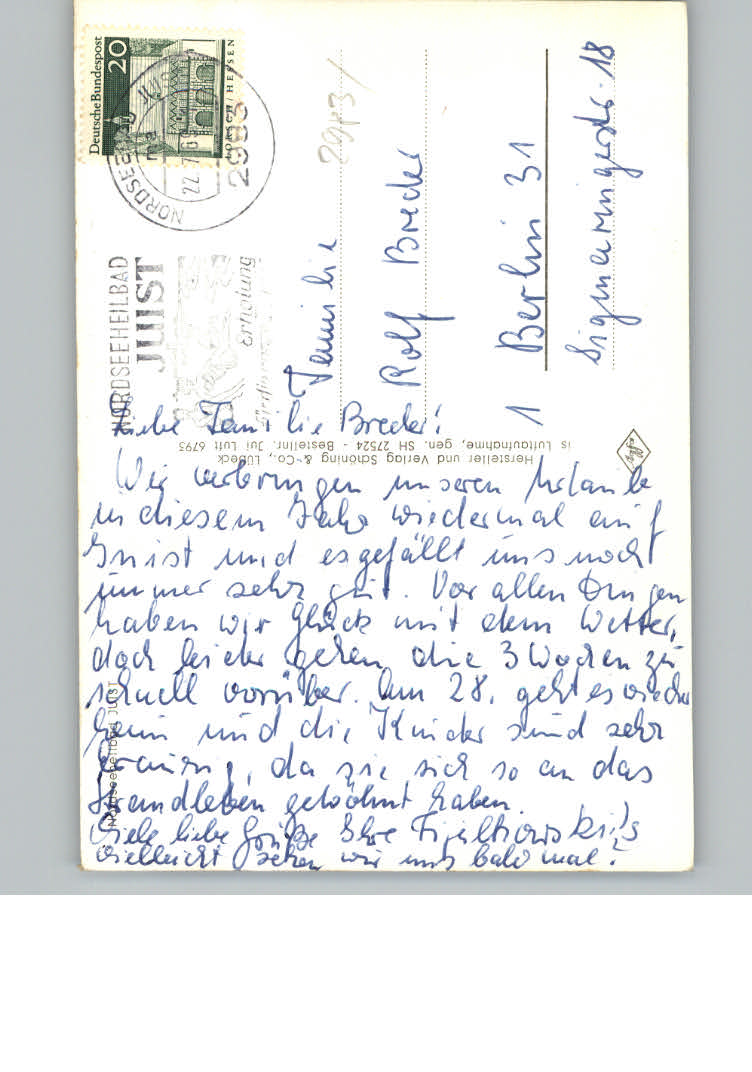 Deutsche Bundespost
20
LORSCH/HESSEN
NORDSEEBAD JUIST
22.7.69
2983
NORDSEEHEILBAD
JUIST
Erholung
2943/
Familie
Rolf Breder
1 Berlin 31
Sigmaringerstr. 18
Liebe Familie Breder!
Wir verbringen unseren Urlaub
in diesem Jahr wiedermal auf
Juist und es gefällt uns noch
immer sehr gut. Vor allen Dingen
haben wir Glück mit dem Wetter,
doch leider gehen die 3 Wochen zu
schnell vorüber. Am 28. geht es wieder
heim und die Kinder sind sehr
traurig, da sie sich so an das
Strandleben gewöhnt haben.
Viele liebe Grüße Ihre Fijalkowski's
Vielleicht sehen wir uns bald mal?
Hersteller und Verlag Schöning & Co., Lübeck
is Luftaufnahme, gen. SH 27524 - Bestellnr. Jui Luft 6795
Nordseeheilbad JUIST